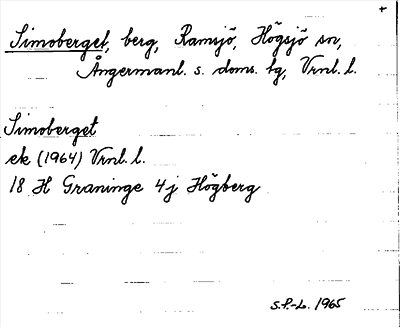 +
Simoberget, berg, Ramsjö, Högsjö sn,
Ångermanl. s. doms. tg, Vrnl. l.
Simoberget
ek (1964) Vrnl. l.
18 H Graninge 4j Högberg
S.P.-L. 1965